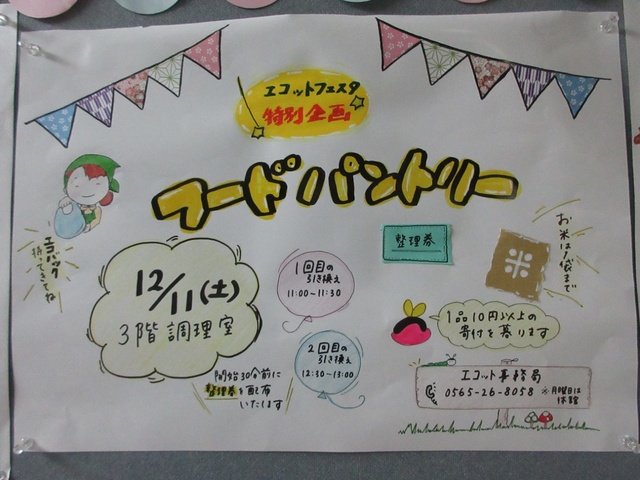 エコットフェスタ
特別企画
フードパントリー
エコバッグ
持ってきてね
12/11(土)
3階調理室
1回目の
引き換え
11:00~11:30
2回目の
引き換え
12:30~13:00
開始30分前に
整理券を配布
いたします
整理券
米
お米は1袋まで
1品10円以上の
寄付を募ります
エコット事務局
0565-26-8058 ※月曜日は
休館